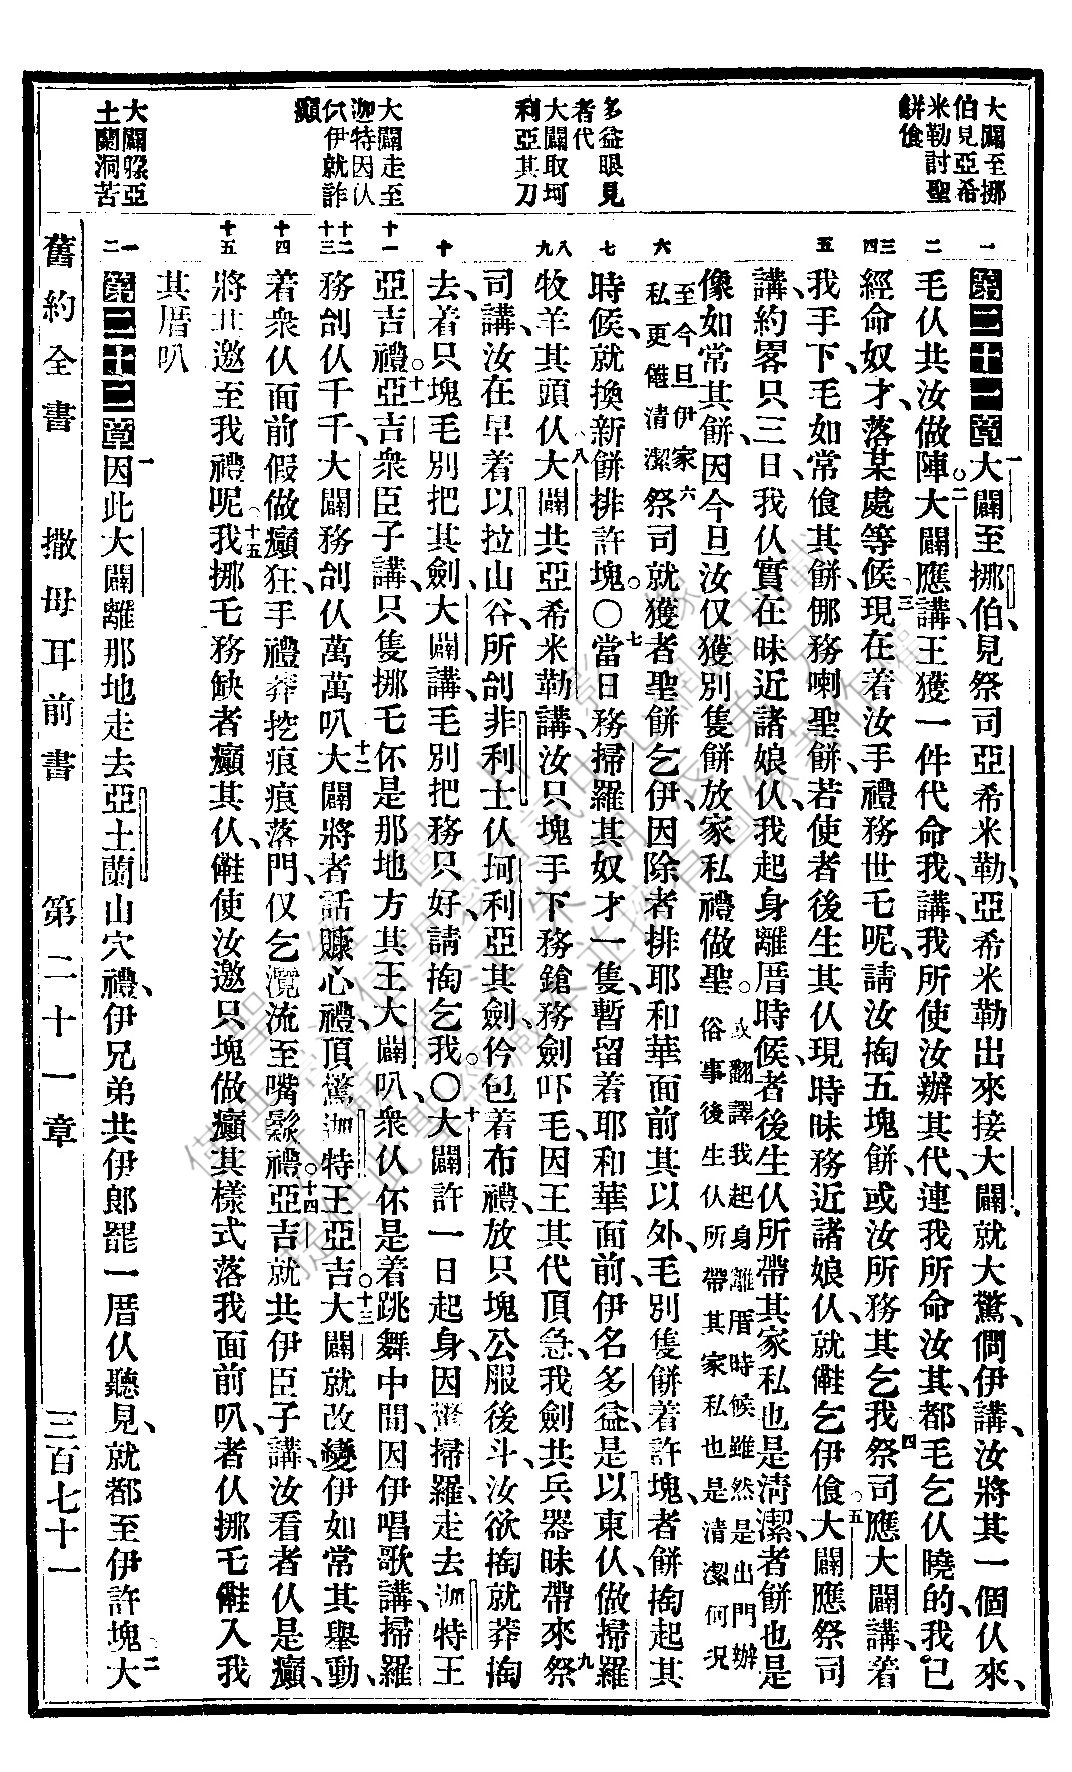 大闢至挪
伯見亞希
米勒討聖
餅飧
多益眼見
者代
大闢取坷
利亞其刀
大闢走至
泇特因仈
伩伊就詐
癲
大闢躱亞
土蘭洞苦
一
二
三
四
五
六
七
八
九
十
十一
十二
十三
十四
十五
一
二
第二十一章一大闢至挪伯、見祭司亞希米勒、亞希米勒出來接大闢就大驚、問伊講、汝將其一個仈來、
毛仈共汝做陣。二大闢應講、王獲一件代命我、講、我所使汝辦其代、連我所命汝其、都毛乞仈曉的、我已
經命奴才、落某處等候、三現在着汝手禮務世乇呢、請汝掏五塊餅、或汝所務其乞我、四祭司應大闢講、着
我手下、毛如常飧其餅、㑚務喇聖餅、若使者後生其仈現時昧務近諸娘仈、就㒕乞伊飧、五大闢應祭司
講、約畧只三日、我仈實在昧近諸娘仈、我起身離厝時候、者後生仈所帶其家私也是淸潔、者餅也是
像如常其餅、因今旦汝仅獲別隻餅放家私禮做聖。或翻譯我起身離厝時候雖然是出門辦
俗事後生仈所帶其家私也是清潔何况
至今旦伊家
私更僫清潔六祭司就獲者聖餅乞伊、因除者排耶和華面前其以外、毛別隻餅着許塊、者餅掏起其
時候、就換新餅排許塊。〇七當日務掃羅其奴才一隻、暫留着耶和華面前、伊名多益、是以東仈、做掃羅
牧羊其頭仈、八大闢共亞希米勒講、汝只塊手下務鎗務劍吓毛、因王其代頂急、我劍共兵器昧帶來、九祭
司講、汝在早着以拉山谷、所刣非利士仈坷利亞其劍、伶包着布禮、放只塊公服後斗、汝欲掏就莽掏
去、着只塊毛別把其劍、大闢講、毛別把務只好、請掏乞我。〇十大闢許一日起身、因驚掃羅、走去泇特王
亞吉禮。十一亞吉衆臣子講、只隻挪乇伓是那地方其王大闢叭、衆仈伓是着跳舞中間、因伊唱歌講、掃羅
務刣仈千千、大闢務刣仈萬萬叭、十二大闢將者話賺心禮、頂驚泇特王亞吉。十三大闢就改變伊如常其舉動、
着衆仈面前假做癲狂、手禮莽挖痕痕落門、仅乞瀾流至嘴鬆禮。十四亞吉就共伊臣子講、汝看者仈是癲、
將世邀至我禮呢、十五我挪乇務缺者癲其仈、㒕使汝邀只塊做癲其樣式落我面前叭、者仈挪乇㒕入我
其厝叭
第二十二章一因此大闢離那地走去亞土蘭山穴禮、伊兄弟共伊郎罷一厝仈聽見、就都至伊許塊、二大
舊約全書 撒母耳前書 第二十一章 三百七十一